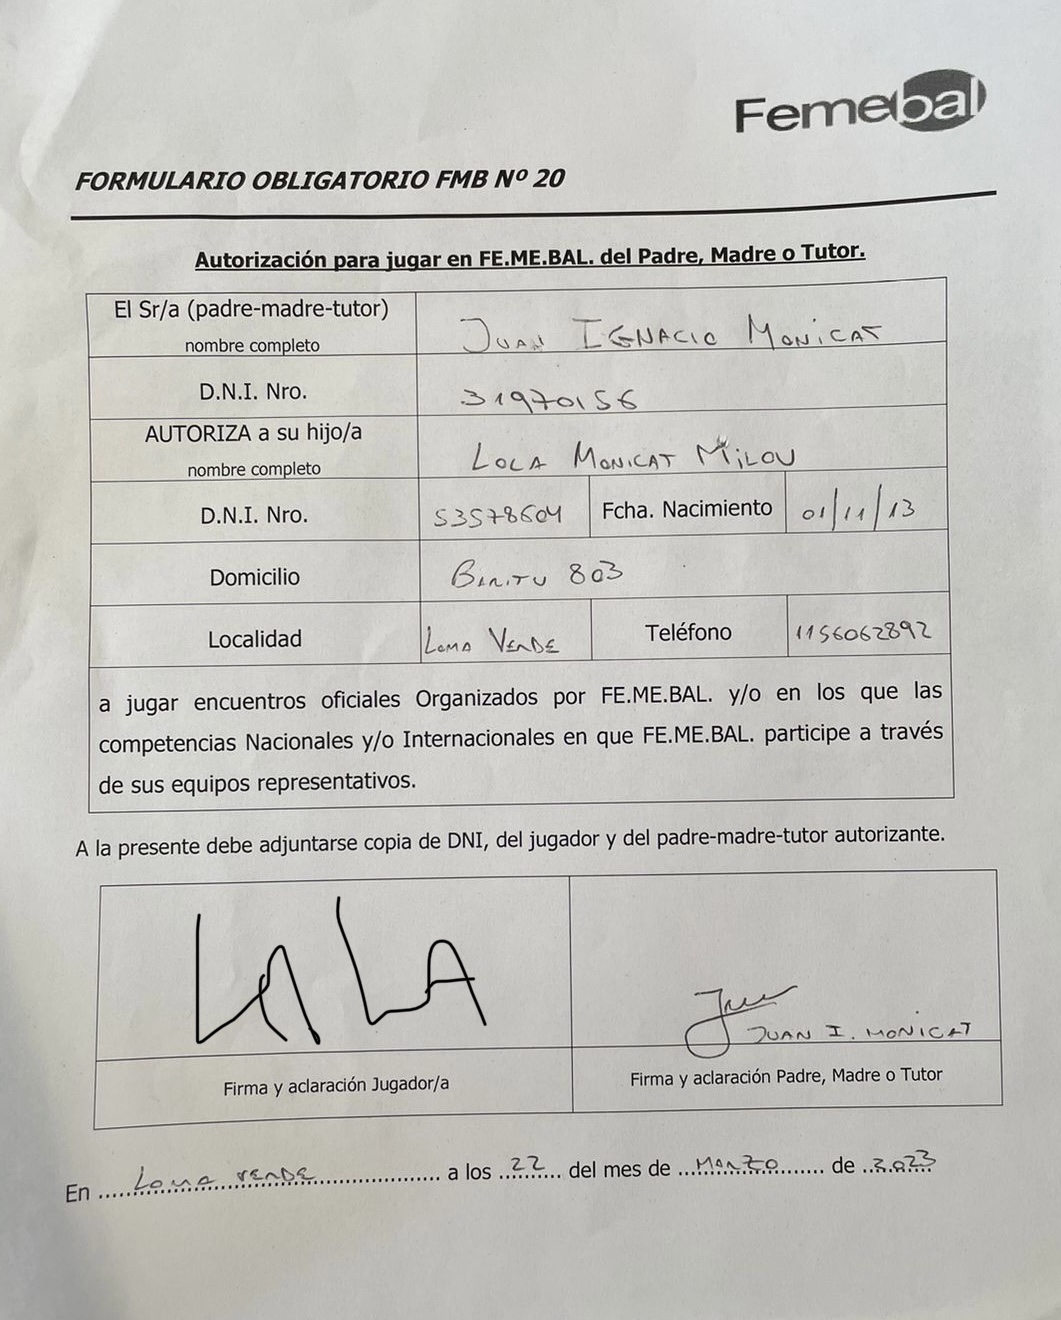 Femebal
FORMULARIO OBLIGATORIO FMB Nº 20
Autorización para jugar en FE.ME.BAL. del Padre, Madre o Tutor.
El Sr/a (padre-madre-tutor)
nombre completo
JUAN IGNACIO MONICAT
D.N.I. Nro.
31970156
AUTORIZA a su hijo/a
nombre completo
LOLA MONICAT MILOU
D.N.I. Nro.
53578604
Fcha. Nacimiento
01/11/13
Domicilio
803
Localidad
LOMA VERDE
Teléfono
1156062892
a jugar encuentros oficiales Organizados por FE.ME.BAL. y/o en los que las
competencias Nacionales y/o Internacionales en que FE.ME.BAL. participe a través
de sus equipos representativos.
A la presente debe adjuntarse copia de DNI, del jugador y del padre-madre-tutor autorizante.
JUAN I. MONICAT
Firma y aclaración Jugador/a
Firma y aclaración Padre, Madre o Tutor
En LOMA VERDE a los 22 del mes de MARZO de 2023